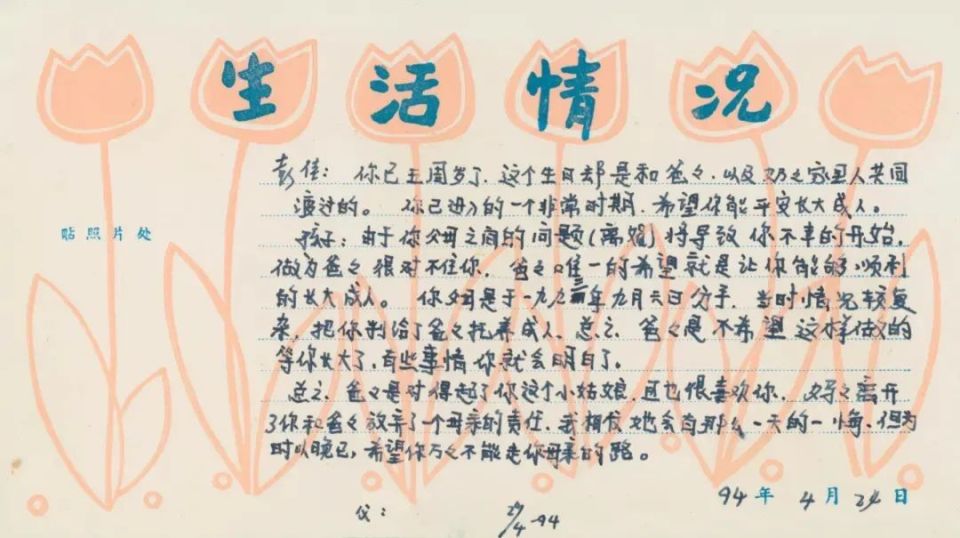 生活情况
彭佳：你已三周岁了，这个生日却是和爸々，以及奶々家里人共同
渡过的。你已进入的一个非常时期，希望你能平安长大成人。
贴照片处
孩子：由于你父母之间的问题(离婚)将导致你不幸的开始，
做为爸々很对不住你，爸々唯一的希望就是让你能够顺利
的长大成人。你父母是于一九九三年九月六日分手，当时情况较复
杂，把你判给了爸々托养成人，总之，爸々是不希望这样做的
等你长大了，有些事情你就会明白了。
总之，爸々是对得起了你这个小姑娘，且也很喜欢你，妈々离开
了你和爸々放弃了一个母亲的责任，我相信她会有那么一天的一悔，但为
时以晚已，希望你万々不能走你母亲的路。
94年4月24日
父：
/4-94